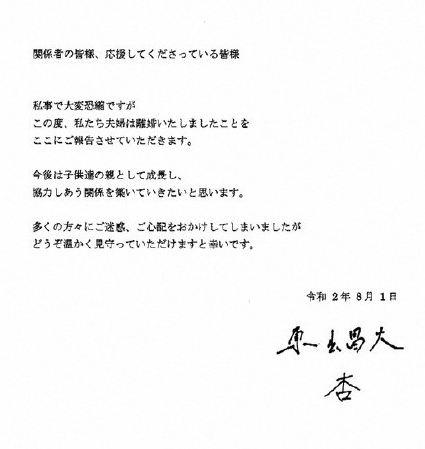 関係者の皆様、応援してくださっている皆様
私事で大変恐縮ですが
この度、私たち夫婦は離婚いたしましたことを
ここにご報告させていただきます。
今後は子供達の親として成長し、
協力しあう関係を築いていきたいと思います。
多くの方々にご迷惑、ご心配をおかけしてしまいましたが
どうぞ温かく見守っていただけますと幸いです。
令和 2年 8月 1日
昌大
杏